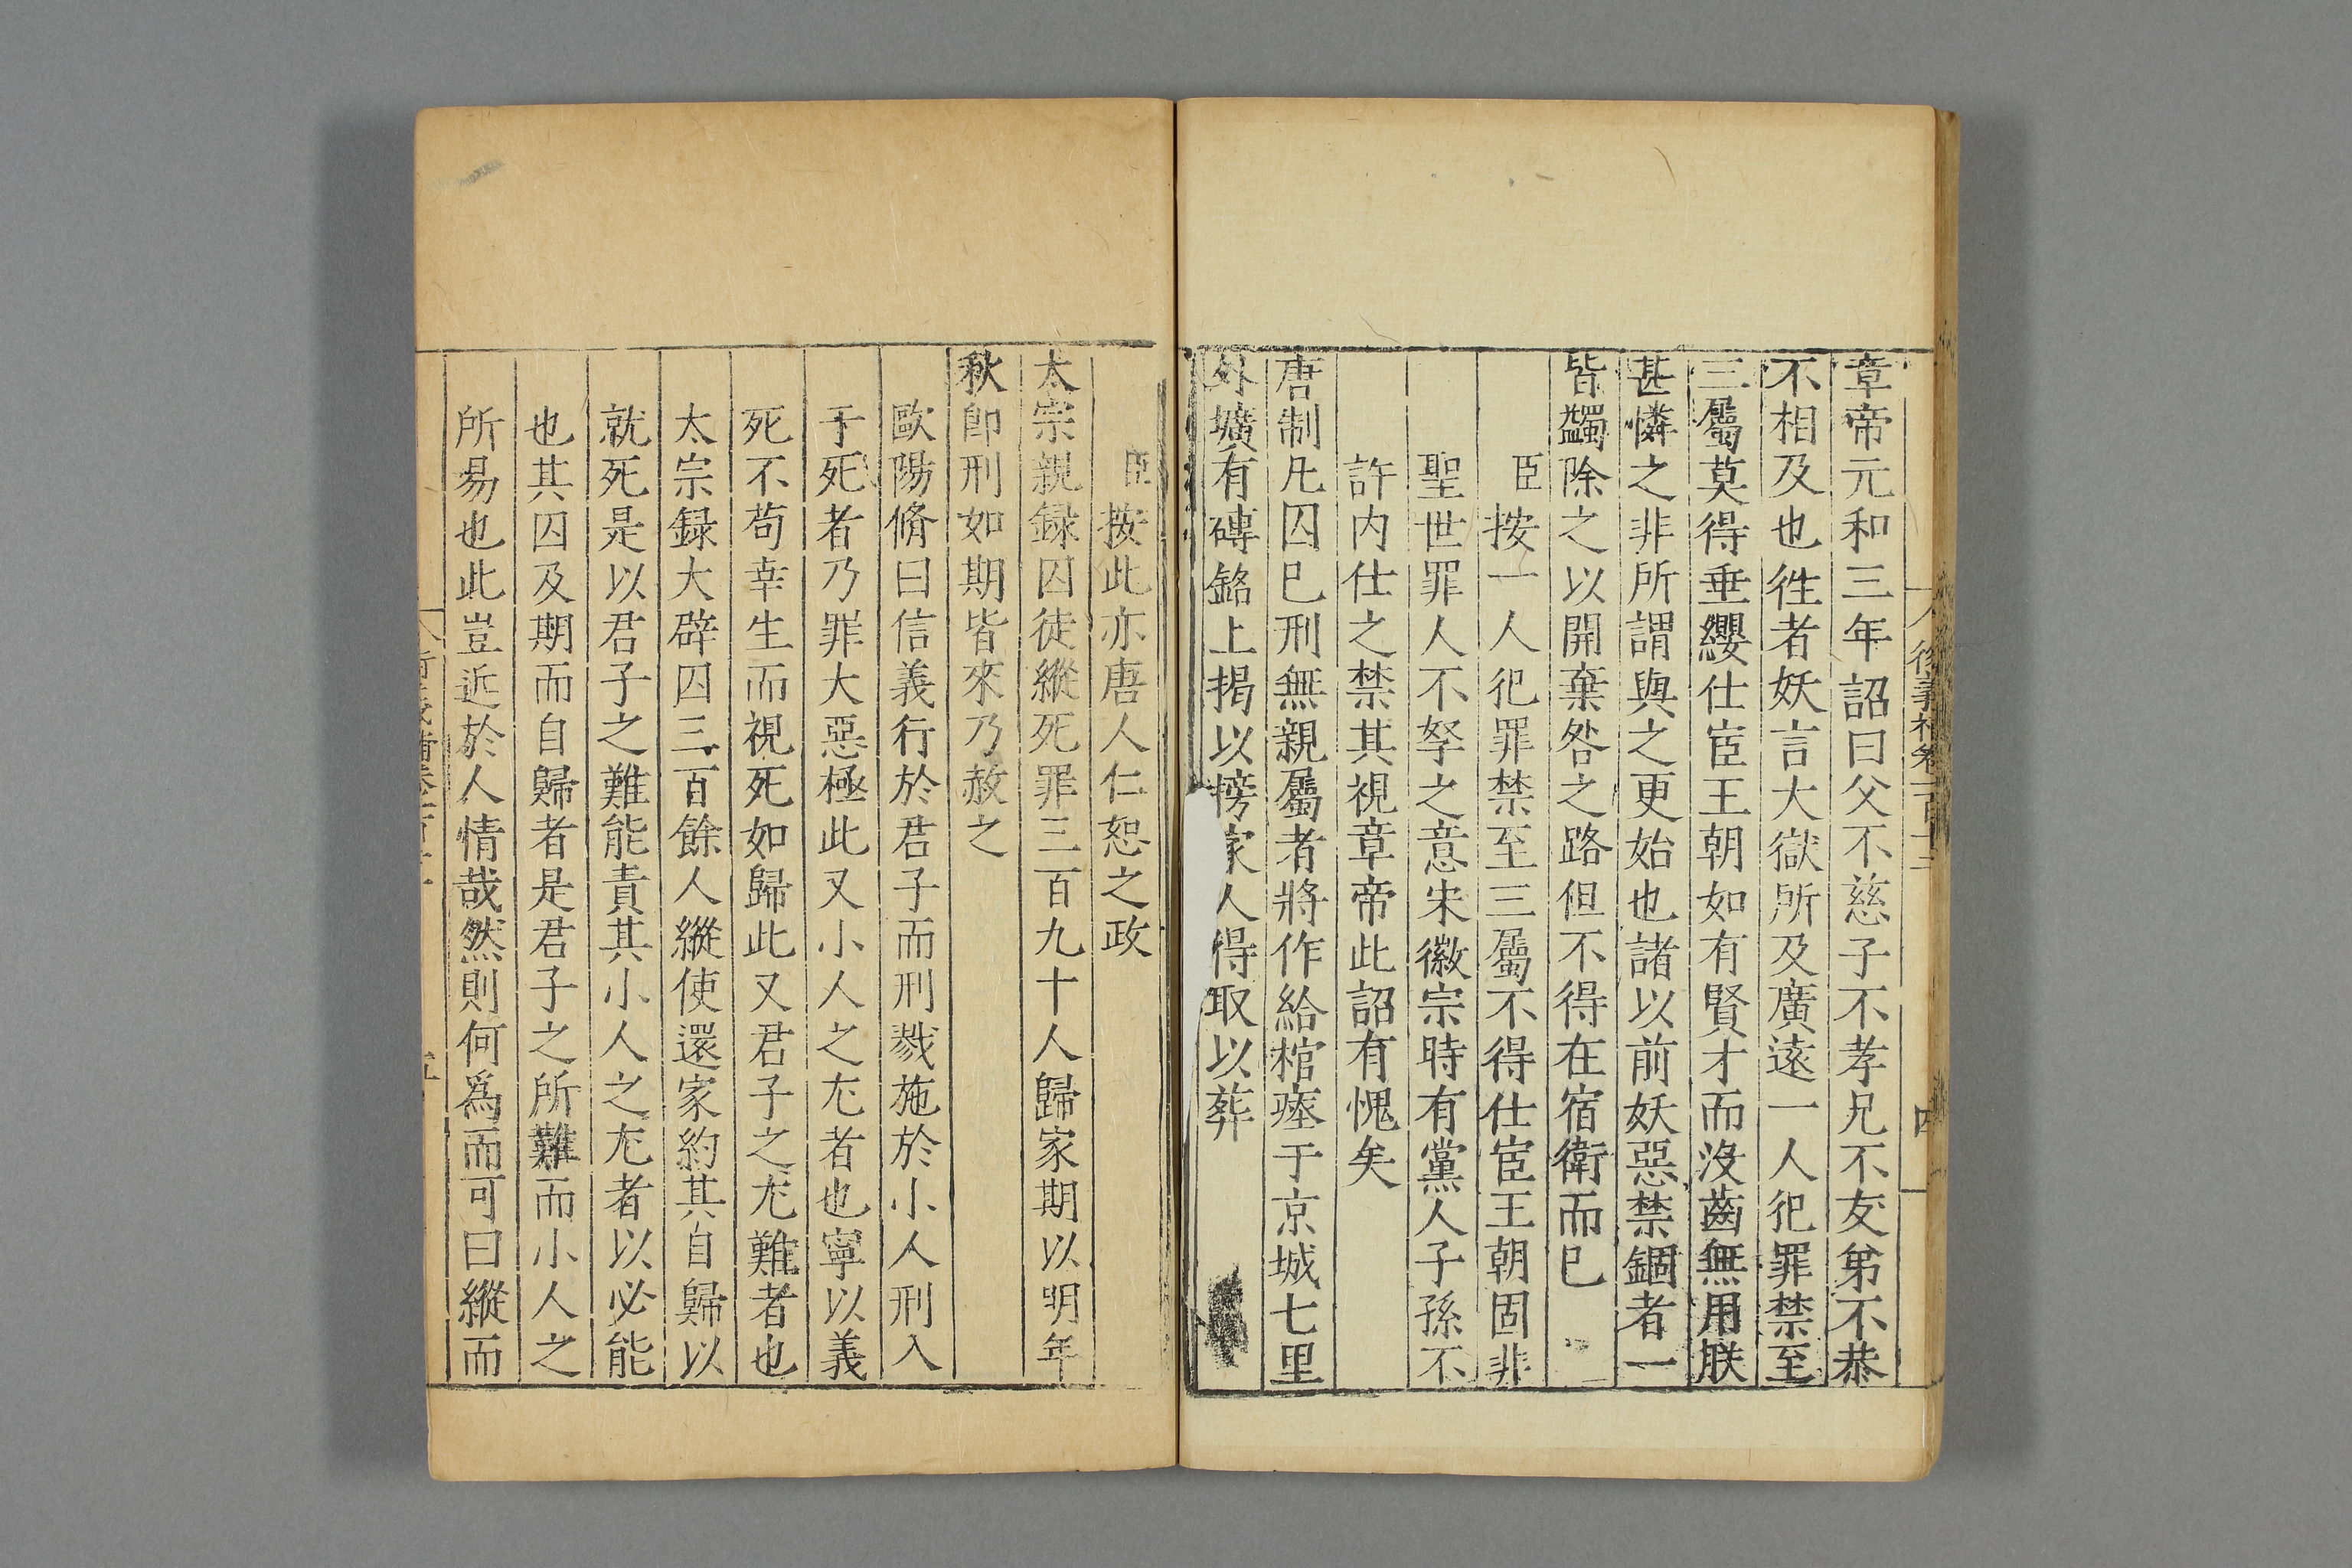 章帝元和三年詔曰父不慈子不孝兄不友弟不恭
不相及也徃者妖言大獄所及廣遠一人犯罪禁至
三屬莫得垂纓仕宦王朝如有賢才而沒齒無用朕
甚憐之非所謂與之更始也諸以前妖惡禁錮者一
皆蠲除之以開棄咎之路但不得在宿衛而已
臣按一人犯罪禁至三屬不得仕宦王朝固非
聖世罪人不孥之意宋徽宗時有黨人子孫不
許内仕之禁其視章帝此詔有愧矣
唐制凡囚已刑無親屬者將作給棺瘞于京城七里
外壙有磚銘上揭以榜家人得取以葬
臣按此亦唐人仁恕之政
太宗親録囚徒縱死罪三百九十人歸家期以明年
秋即刑如期皆來乃赦之
歐陽脩曰信義行於君子而刑戮施於小人刑入
于死者乃罪大惡極此又小人之尤者也寧以義
死不苟幸生而視死如歸此又君子之尤難者也
太宗録大辟囚三百餘人縱使還家約其自歸以
就死是以君子之難能責其小人之尤者以必能
也其囚及期而自歸者是君子之所難而小人之
所易也此豈近於人情哉然則何爲而可曰縱而